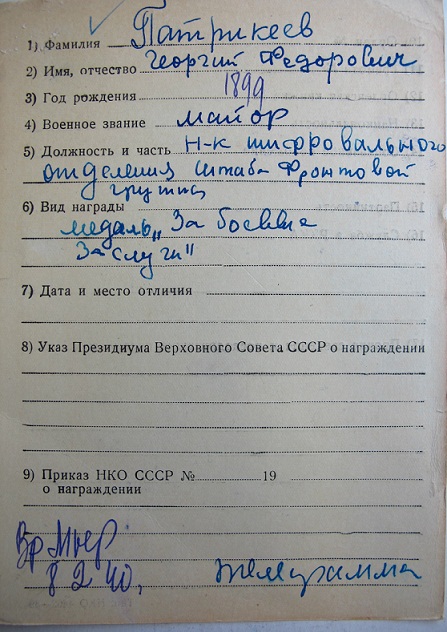 1) Фамилия Патрикеев
2) Имя, отчество Георгий Федорович
3) Год рождения 1899
4) Военное звание майор
5) Должность и часть Н-к шифровального
отделения штаба Фронтовой
группы
6) Вид награды
медаль „За боевые
Заслуги"
7) Дата и место отличия
8) Указ Президиума Верховного Совета СССР о награждении
9) Приказ НКО СССР № 19
о награждении
8 2 40,
телеграмма